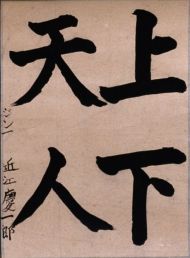 上下
天人
六ノ一 近江慶一郎